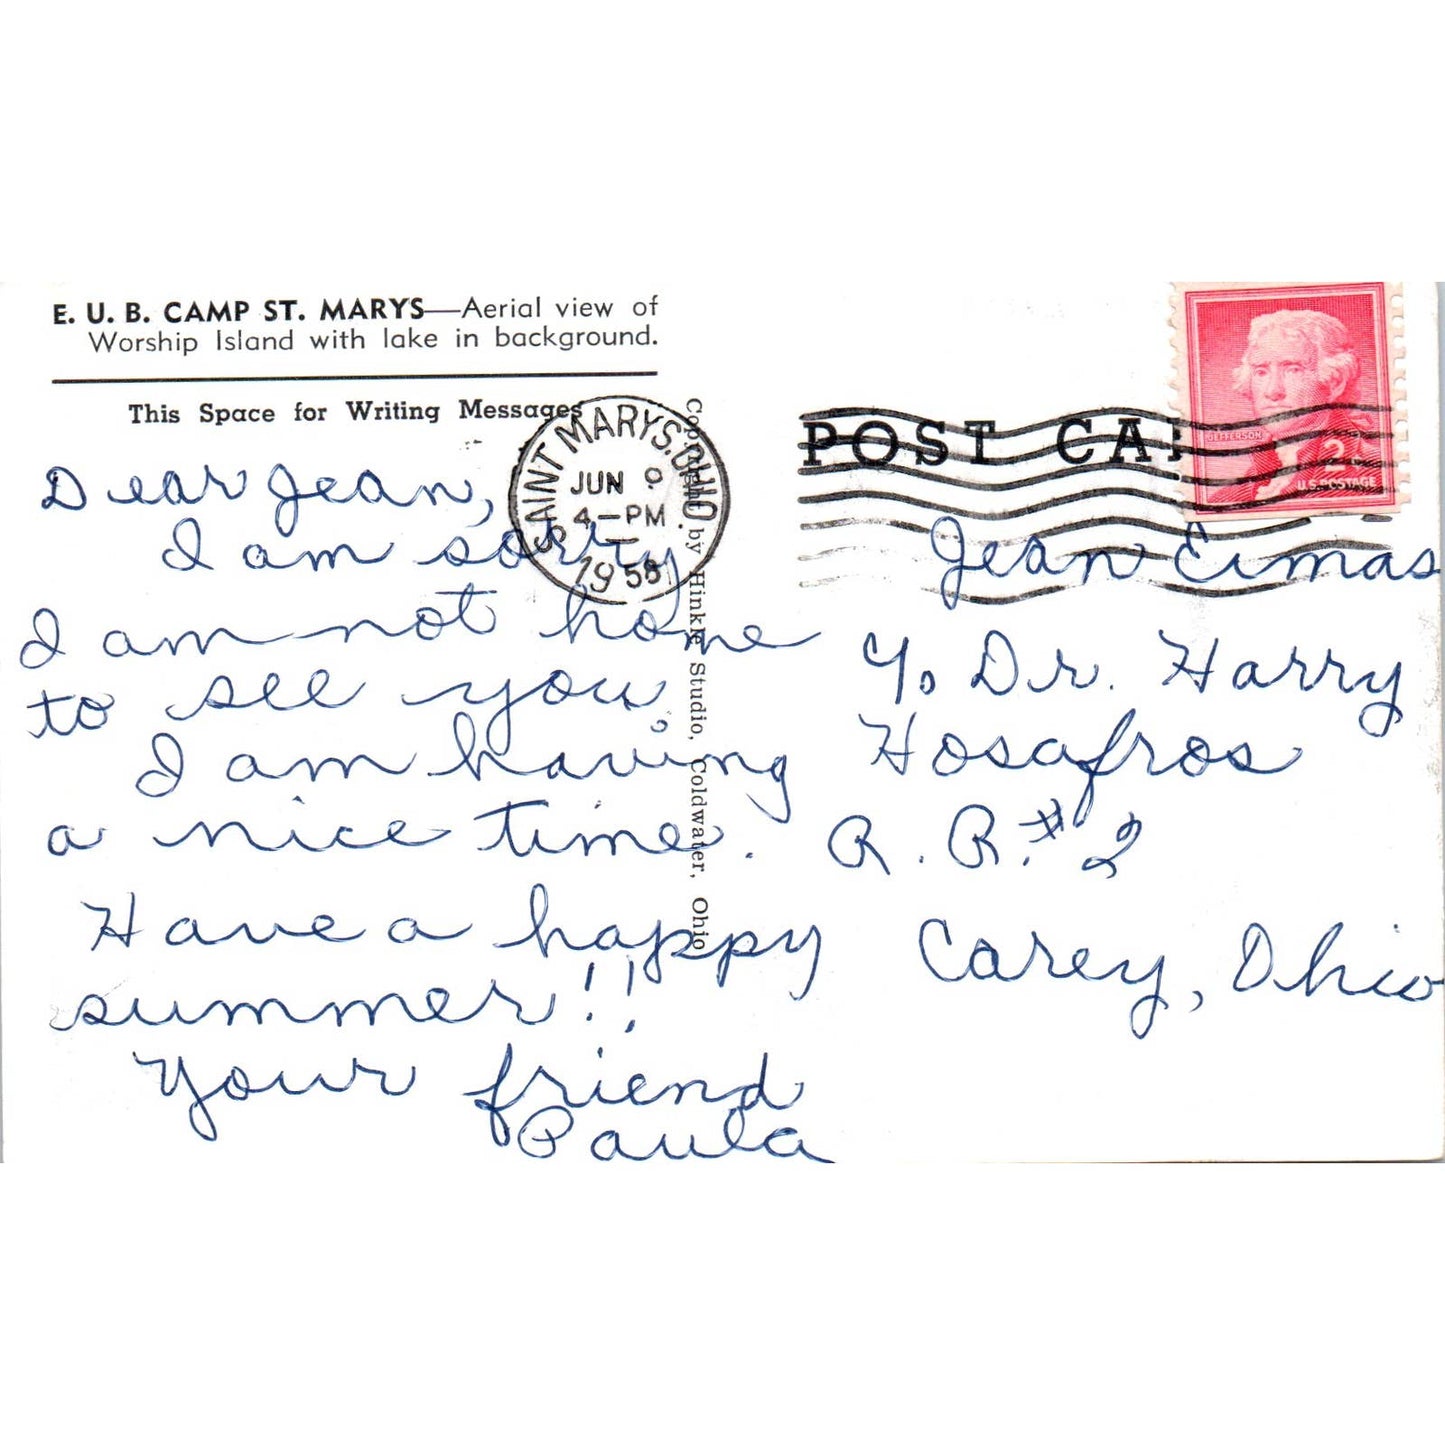 E. U. B. CAMP ST. MARYS—Aerial view of
Worship Island with lake in background.
This Space for Writing Messages
SAINT MARYS. OHIO.
JUN 9
4-PM
1958
POST CAR
JEFFERSON
2¢
U.S. POSTAGE
by Hinkle Studio, Coldwater, Ohio
Dear Jean,
I am sorry
I am not home
to see you.
I am having
a nice time.
Have a happy
summer!!
Your friend
Paula
Jean Eimas
℅ Dr. Harry
Hosafros
R. R. #2
Carey, Ohio